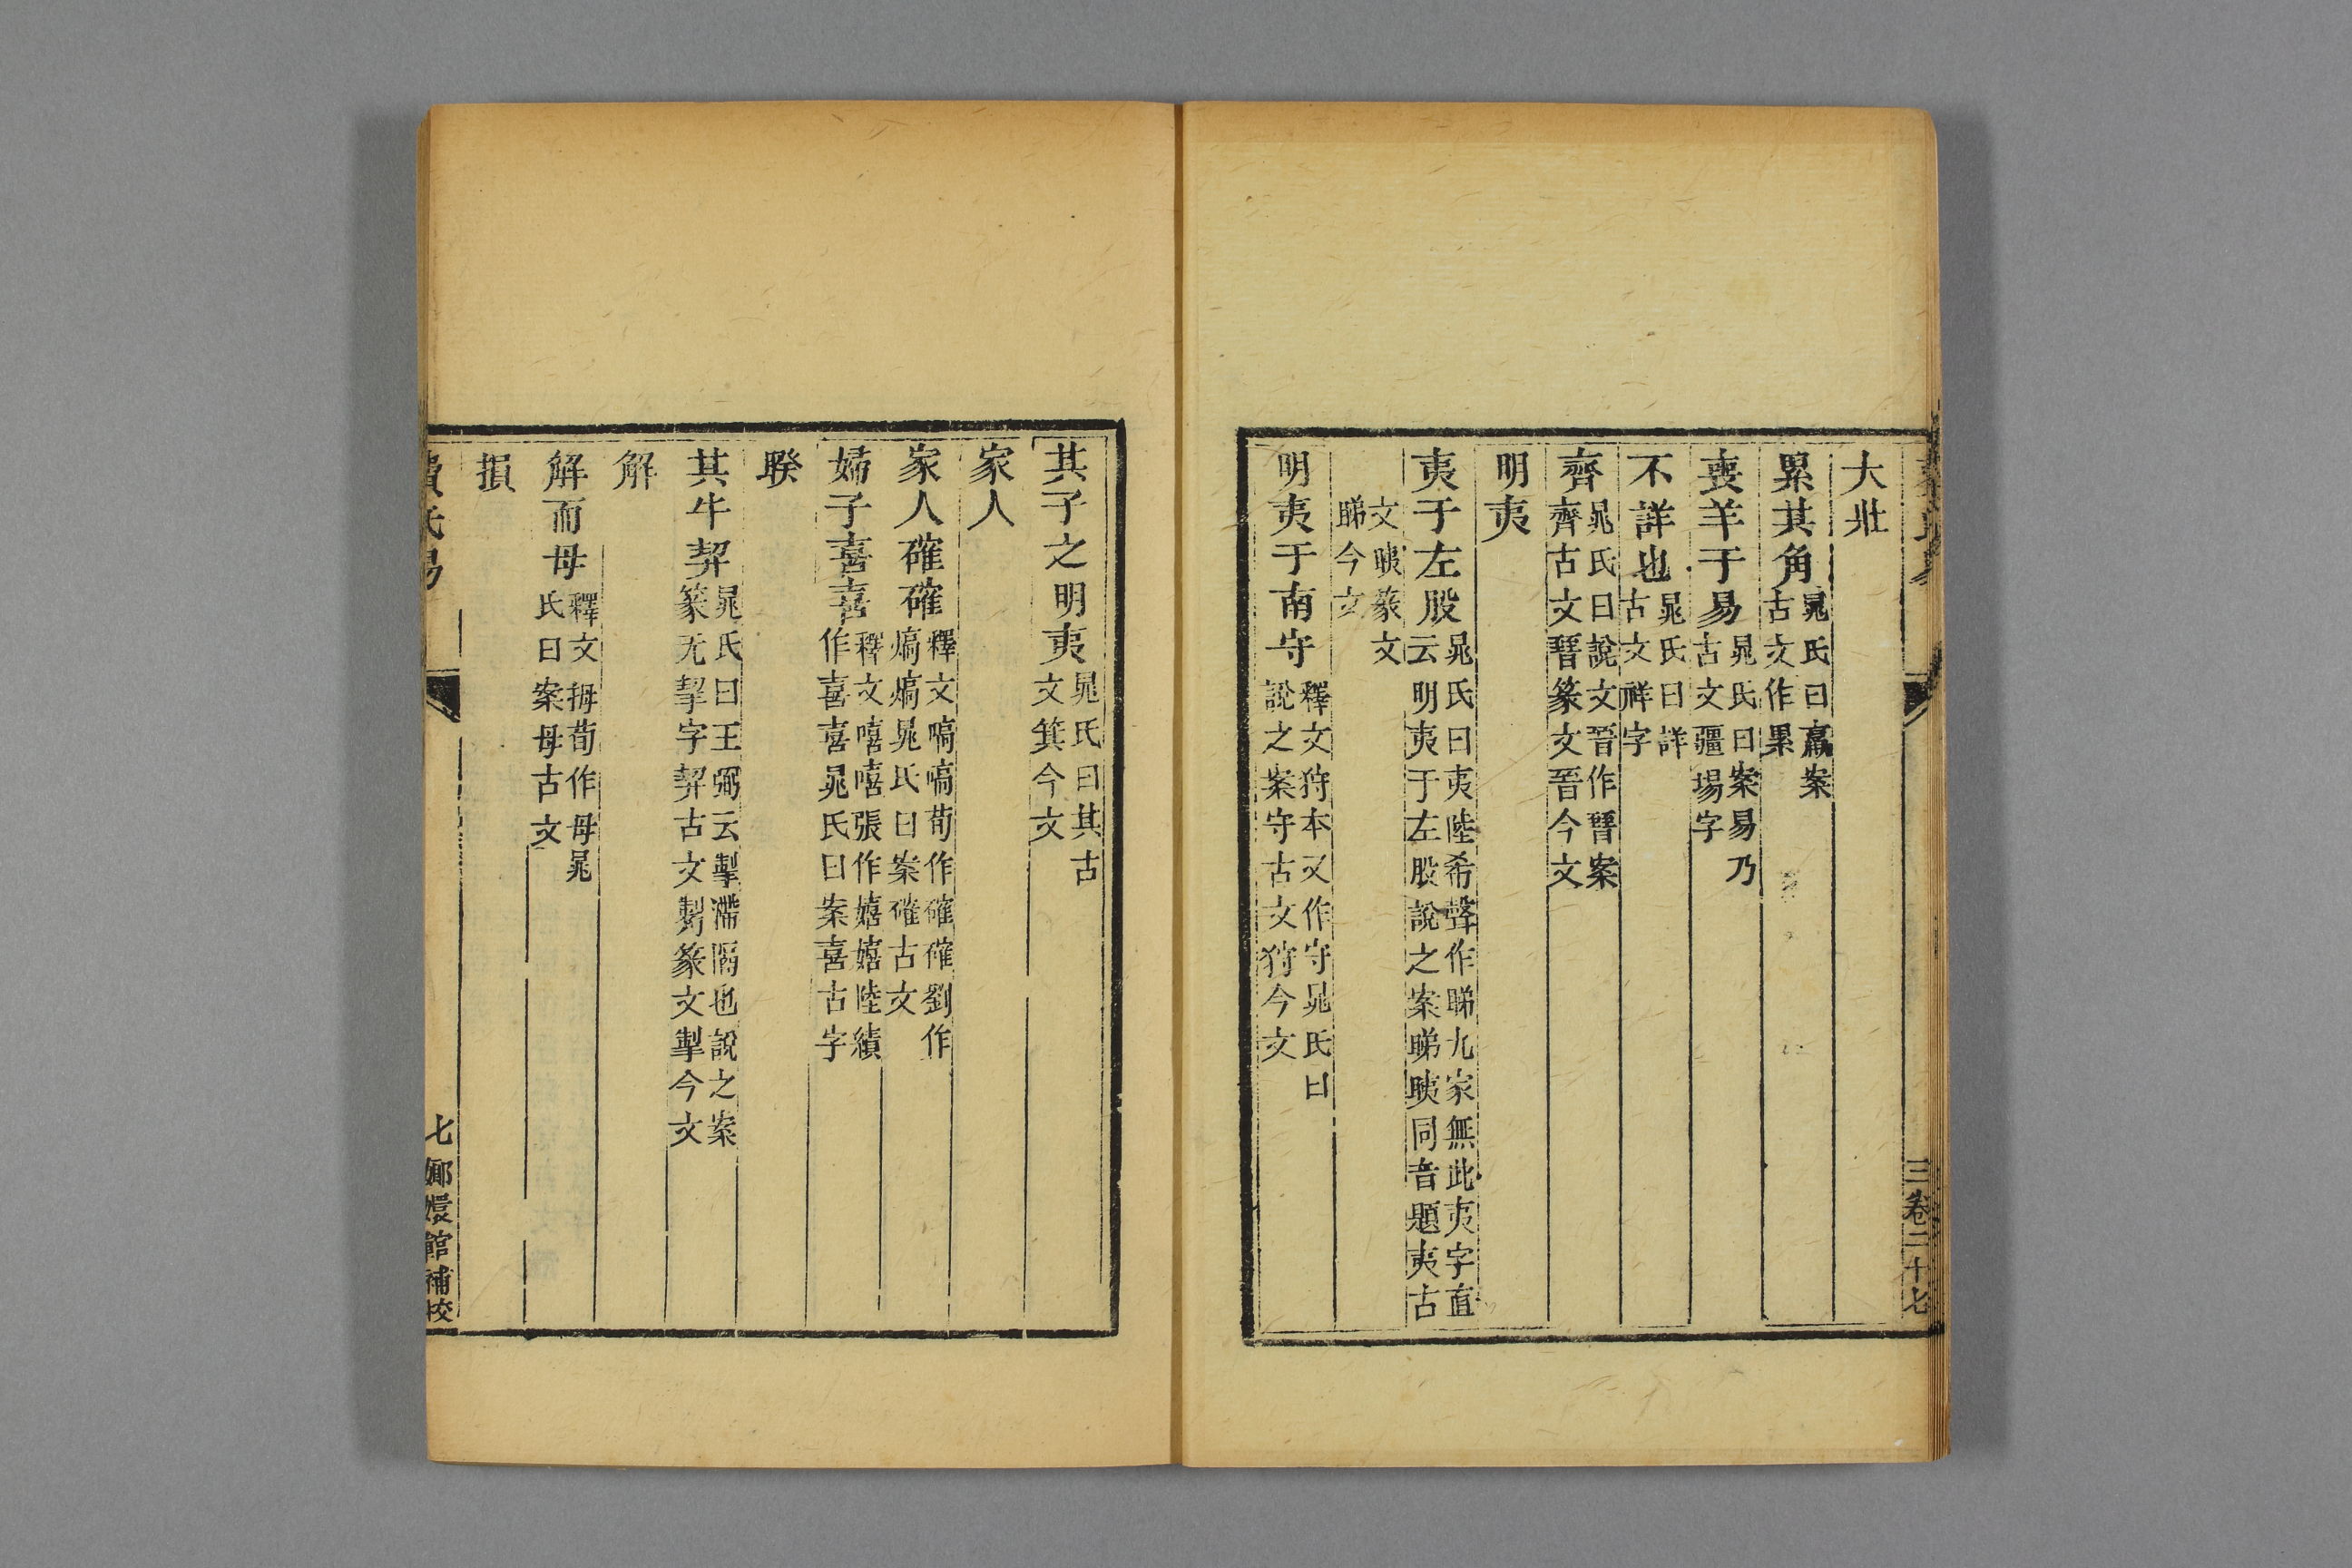 三卷二十七
大壯
累其角晁氏曰羸案古文作累
喪羊于易晁氏曰案易乃古文疆場字
不詳也晁氏曰詳古文祥字
齊晁氏曰說文晋作㬜案齊古文㬜篆文晋今文
明夷
夷于左股晁氏曰夷陸希聲作睇九家無此夷字直云明夷于左股說之案睇眱同音題夷古
文眱篆文睇今文
明夷于南守釋文狩本又作守晁氏曰說之案守古文狩今文
其子之明夷晁氏曰其古文箕今文
家人
家人確確釋文嗃嗃荀作確確劉作熇熇晁氏曰案確古文
婦子喜喜釋文嘻嘻張作嬉嬉陸績作喜喜晁氏曰案喜古字
睽
其牛挈晁氏曰王弼云掣滯隔也說之案篆无挈字挈古文觢篆文掣今文
解
解而母釋文拇荀作母晁氏曰案母古文
損
費氏易 七嫏嬛館補校